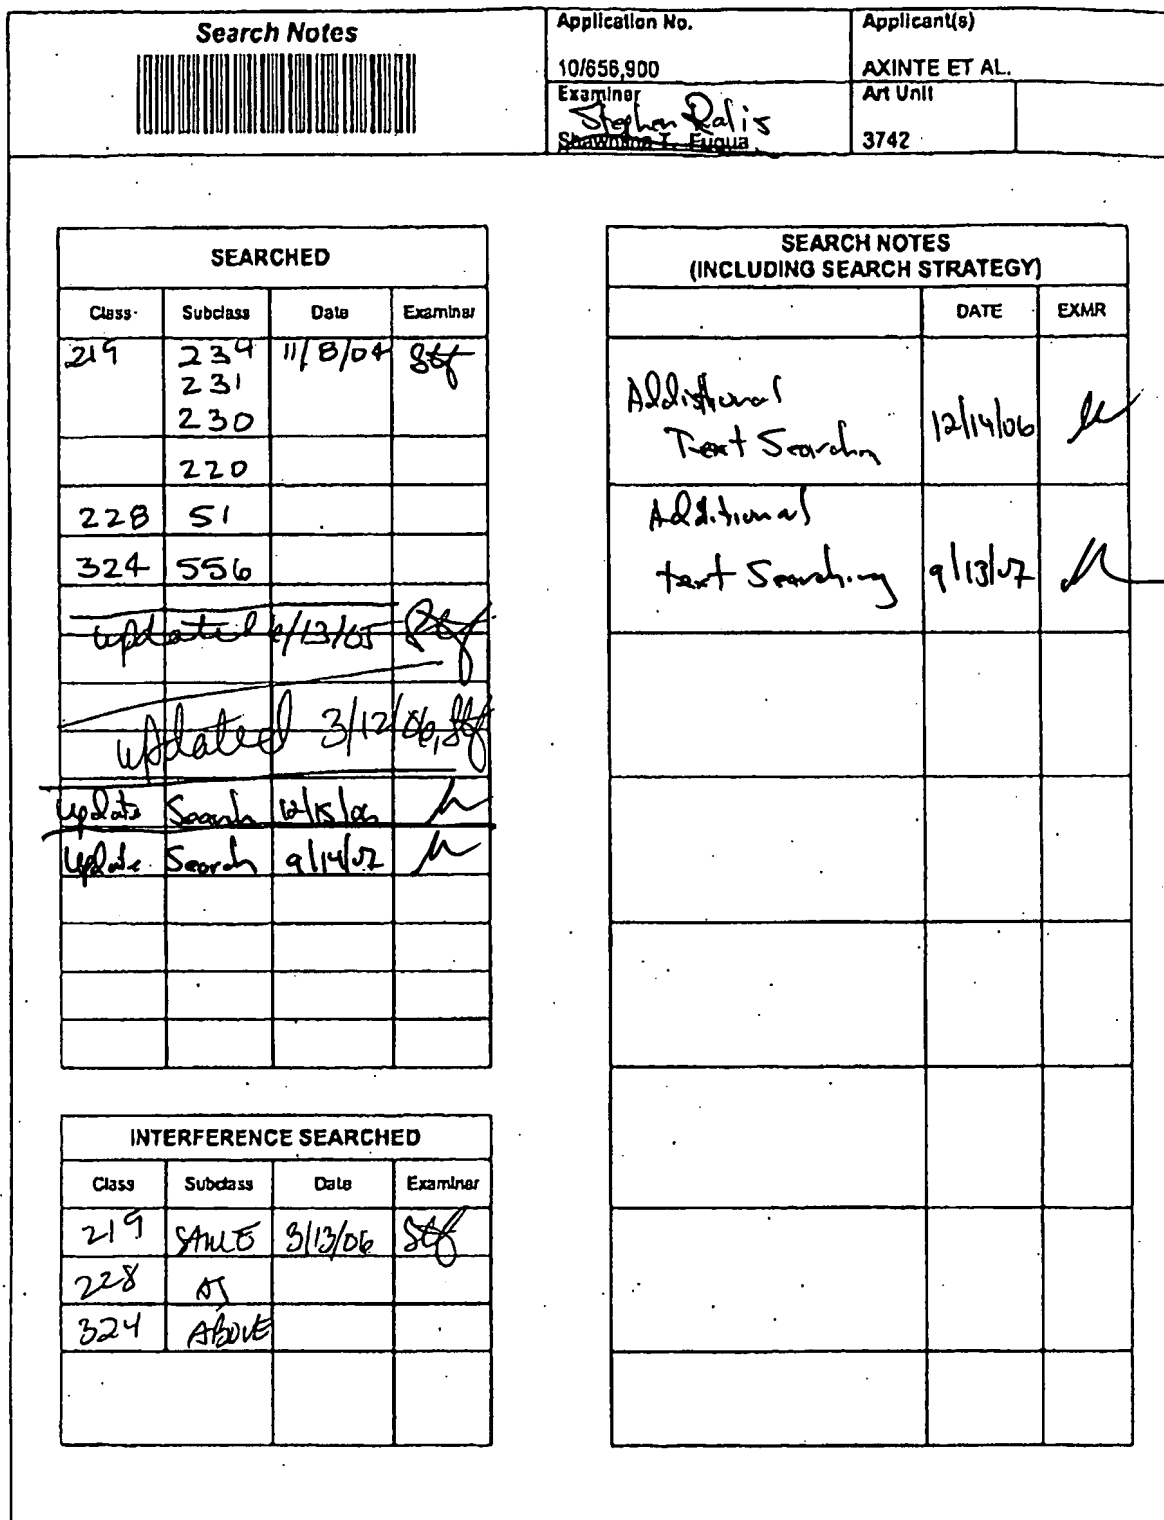 Search Notes
Application No.
Applicant(s)
10/656,900
AXINTE ET AL.
Examiner
Art Unit
Stephen Ralis
Shawntina T. Fuqua
3742
SEARCHED
Class Subclass Date Examiner
219 239 11/8/04 Stf
231
230
220
228 51
324 556
updated 6/13/05 Stf
updated 3/12/06, Stf
update Search 12/15/06
update Search 9/14/07
INTERFERENCE SEARCHED
Class Subclass Date Examiner
219 SAME 3/13/06 Stf
228 AS
324 ABOVE
SEARCH NOTES
(INCLUDING SEARCH STRATEGY)
DATE EXMR
Additional
Text Searching 12/14/06
Additional
text Searching 9/13/07